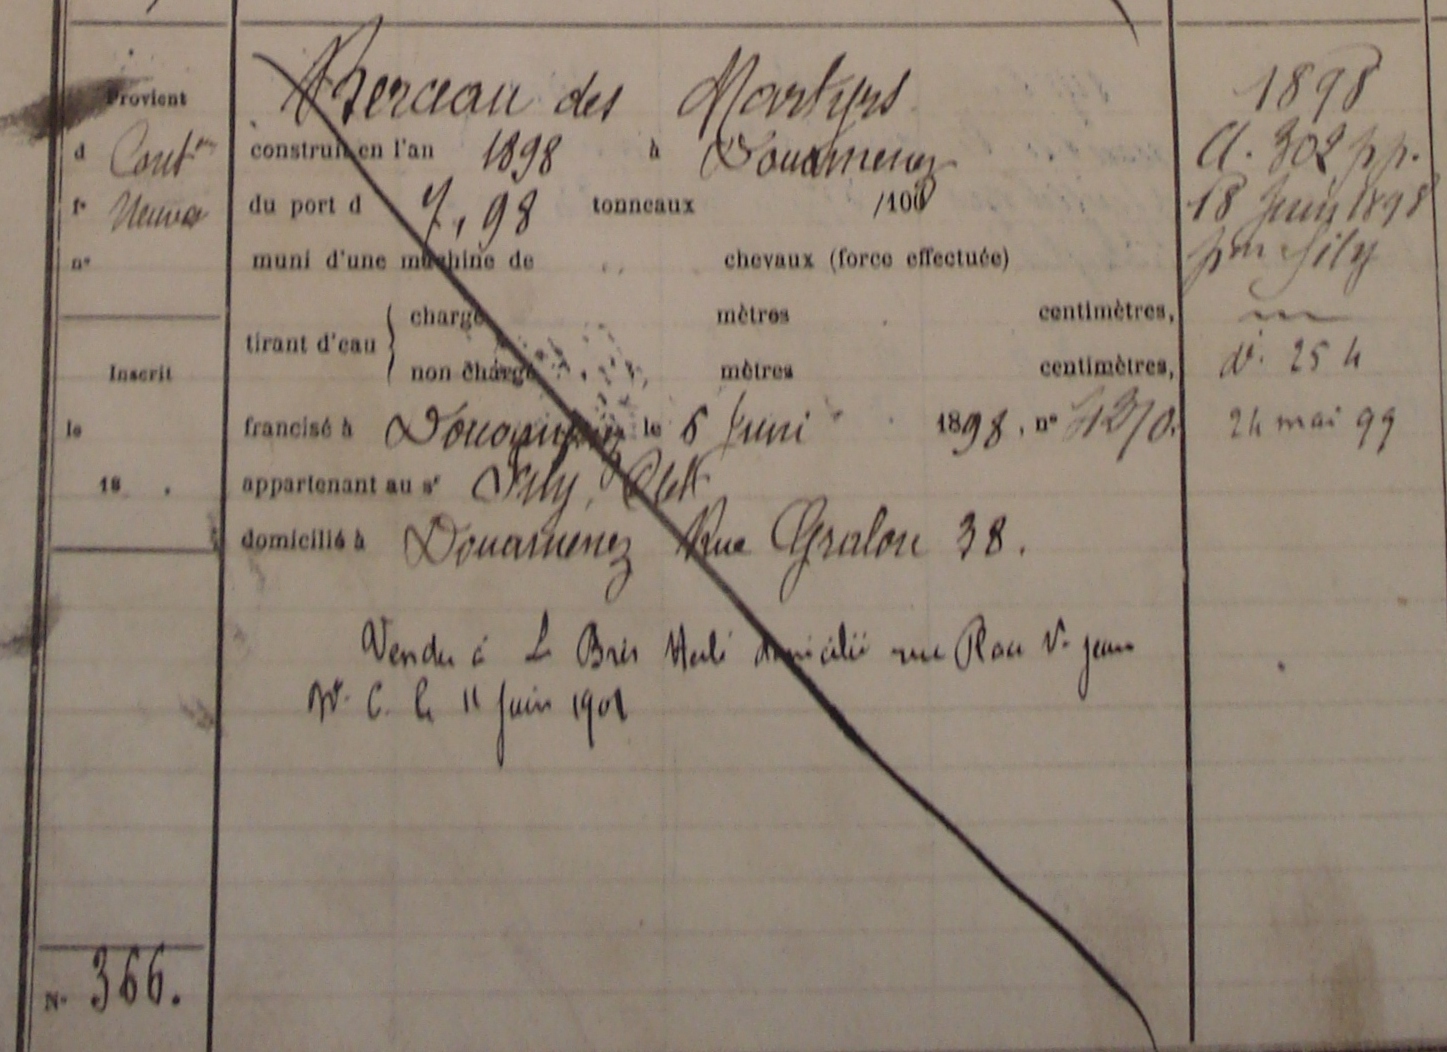 Provient
d Cont^on
f^e Neuve
n°
Inscrit
le
18 .
N° 366.
Berceau des Martyrs
construit en l'an 1898 à Douarnenez
du port d 7,98 tonneaux /100
muni d'une machine de chevaux (force effectuée)
tirant d'eau { chargé mètres centimètres,
non chargé mètres centimètres,
francisé à Douarnenez le 6 Juni 1898, n°
appartenant au s^r
domicilié à Douarnenez Rue Gralon 38.
Vendu à Le Bris domicilié rue Jean
le 11 juin 1901
1898
A. 302 pp.
18 Juin 1898
d. 25 4
24 mai 99